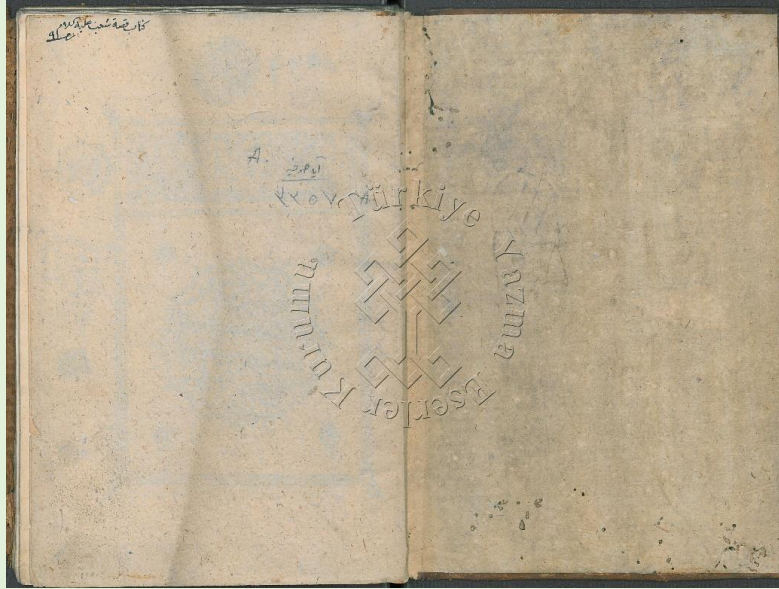 كتاب قصة شعيب عليه السلام
A.
آيا صوفيه
Türkiye Yazma Eserler Kurumu